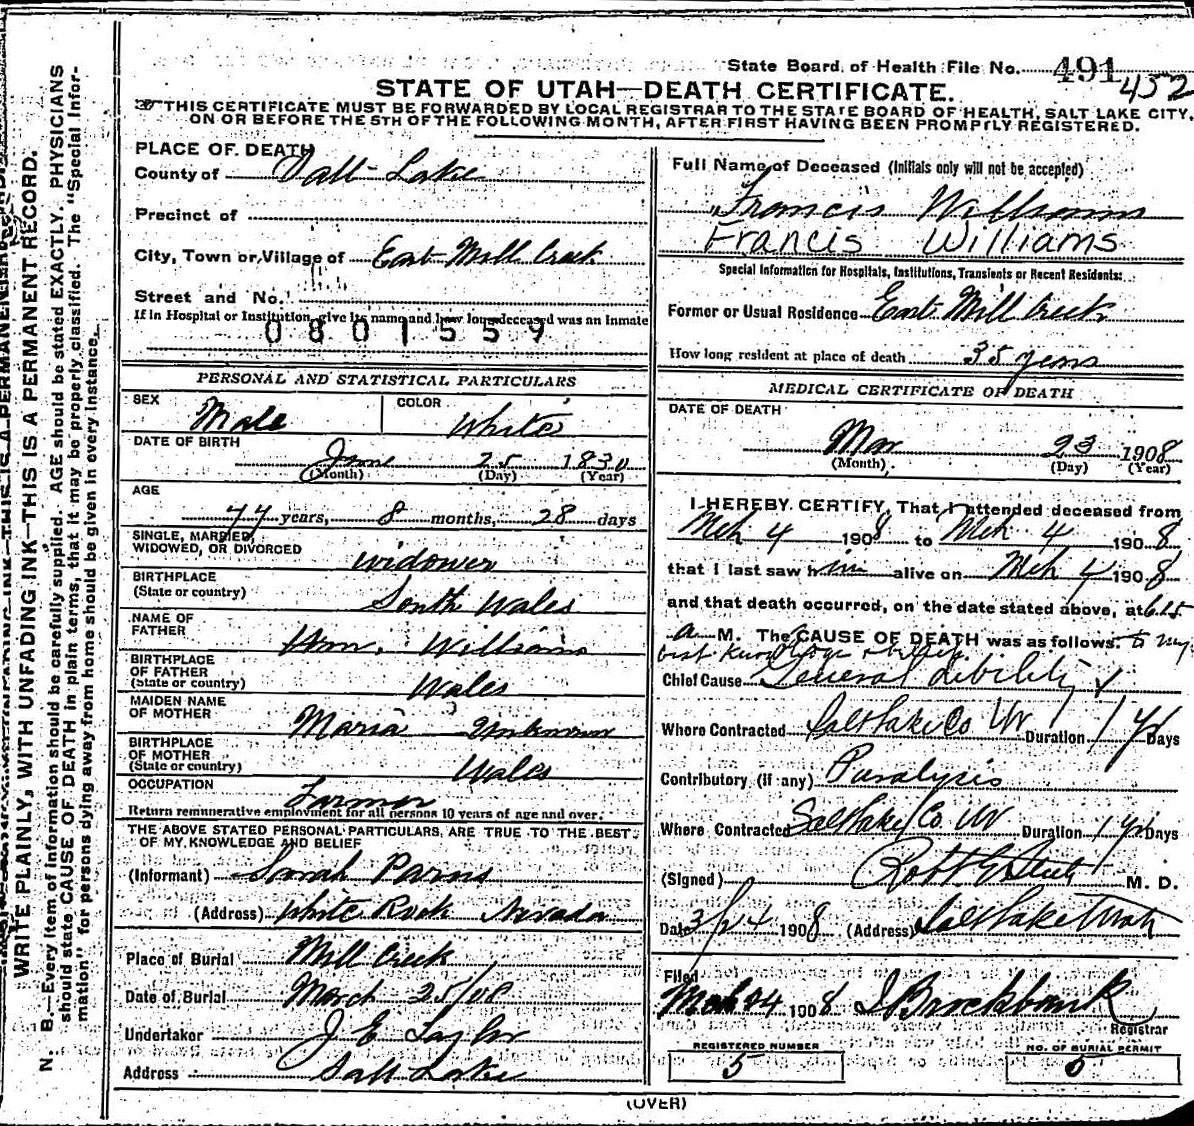 State Board of Health File No. 491 452
STATE OF UTAH—DEATH CERTIFICATE.
THIS CERTIFICATE MUST BE FORWARDED BY LOCAL REGISTRAR TO THE STATE BOARD OF HEALTH, SALT LAKE CITY,
ON OR BEFORE THE 5TH OF THE FOLLOWING MONTH, AFTER FIRST HAVING BEEN PROMPTLY REGISTERED.
WRITE PLAINLY, WITH UNFADING INK—THIS IS A PERMANENT RECORD.
N. B.—Every item of information should be carefully supplied. AGE should be stated EXACTLY. PHYSICIANS
should state CAUSE OF DEATH in plain terms, that it may be properly classified. The "Special Infor-
mation" for persons dying away from home should be given in every instance.
PLACE OF DEATH
County of Salt Lake
Precinct of
City, Town or Village of East Mill Creek
Street and No.
If in Hospital or Institution, give its name and how long deceased was an Inmate
0801559
PERSONAL AND STATISTICAL PARTICULARS
SEX Male COLOR White
DATE OF BIRTH
June 25 1830
(Month) (Day) (Year)
AGE
77 years, 8 months, 28 days
SINGLE, MARRIED,
WIDOWED, OR DIVORCED widower
BIRTHPLACE
(State or country) South Wales
NAME OF
FATHER Wm. Williams
BIRTHPLACE
OF FATHER
(State or country) Wales
MAIDEN NAME
OF MOTHER Maria Unknown
BIRTHPLACE
OF MOTHER
(State or country) Wales
OCCUPATION Farmer
Return remunerative employment for all persons 10 years of age and over.
THE ABOVE STATED PERSONAL PARTICULARS ARE TRUE TO THE BEST
OF MY KNOWLEDGE AND BELIEF
(Informant) Sarah
(Address) White Rock Nevada
Place of Burial Mill Creek
Date of Burial March 25/08
Undertaker J E Taylor
Address Salt Lake
Full Name of Deceased (Initials only will not be accepted)
Francis Williams
Francis Williams
Special Information for Hospitals, Institutions, Transients or Recent Residents:
Former or Usual Residence East Mill Creek
How long resident at place of death 35 years
MEDICAL CERTIFICATE OF DEATH
DATE OF DEATH
Mar 23 1908
(Month) (Day) (Year)
I HEREBY CERTIFY, That I attended deceased from
Mch 4 1908 to Mch 4 1908
that I last saw him alive on Mch 4 1908
and that death occurred, on the date stated above, at 6.15
a M. The CAUSE OF DEATH was as follows: to my
best knowledge & belief
Chief Cause General debility
Where Contracted Salt Lake Co Ut Duration 1 yr Days
Contributory (if any) Paralysis
Where Contracted Salt Lake Co Ut Duration 1 yr Days
(Signed) Robt M. D.
Date 3/24 1908 (Address) Salt Lake Utah
Filed
Mch 24 1908 J Brockbank
Registrar
REGISTERED NUMBER
5
NO. OF BURIAL PERMIT
5
(OVER)